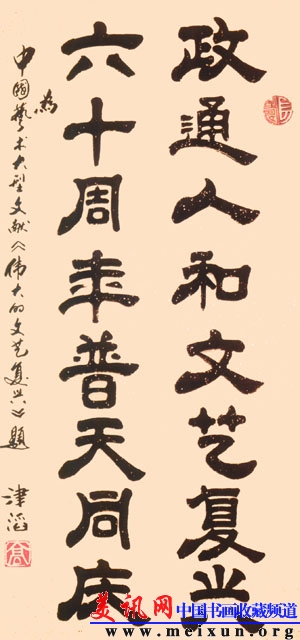 政通人和文艺复兴
六十周年普天同庆
為
中國藝术大型文献《伟大的文艺复兴》题
津滔
美讯网 中国书画收藏频道
www.meixun.org